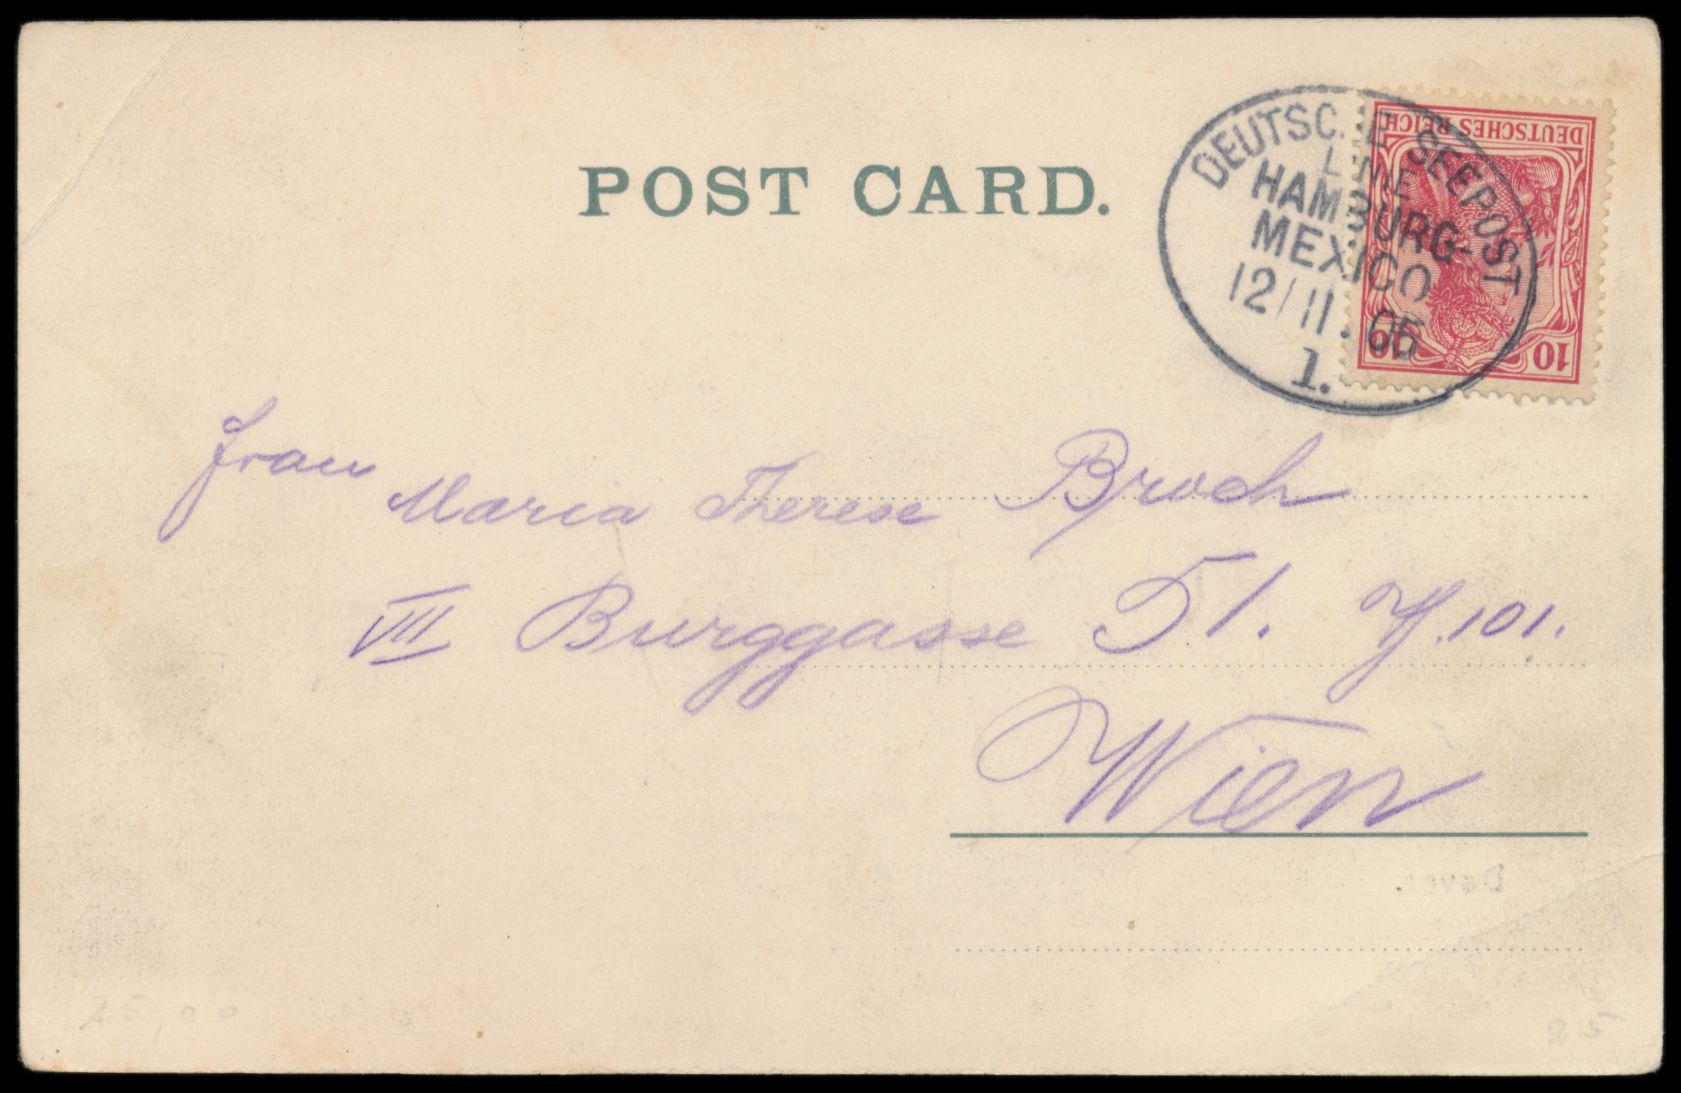 POST CARD.
DEUTSCHE SEEPOST
LINIE
HAMBURG-
MEXICO
12/11.05
1.
DEUTSCHES REICH
10 10
Frau
Maria Therese Broch
VII Burggasse 51. 101.
Wien
Dover.
25